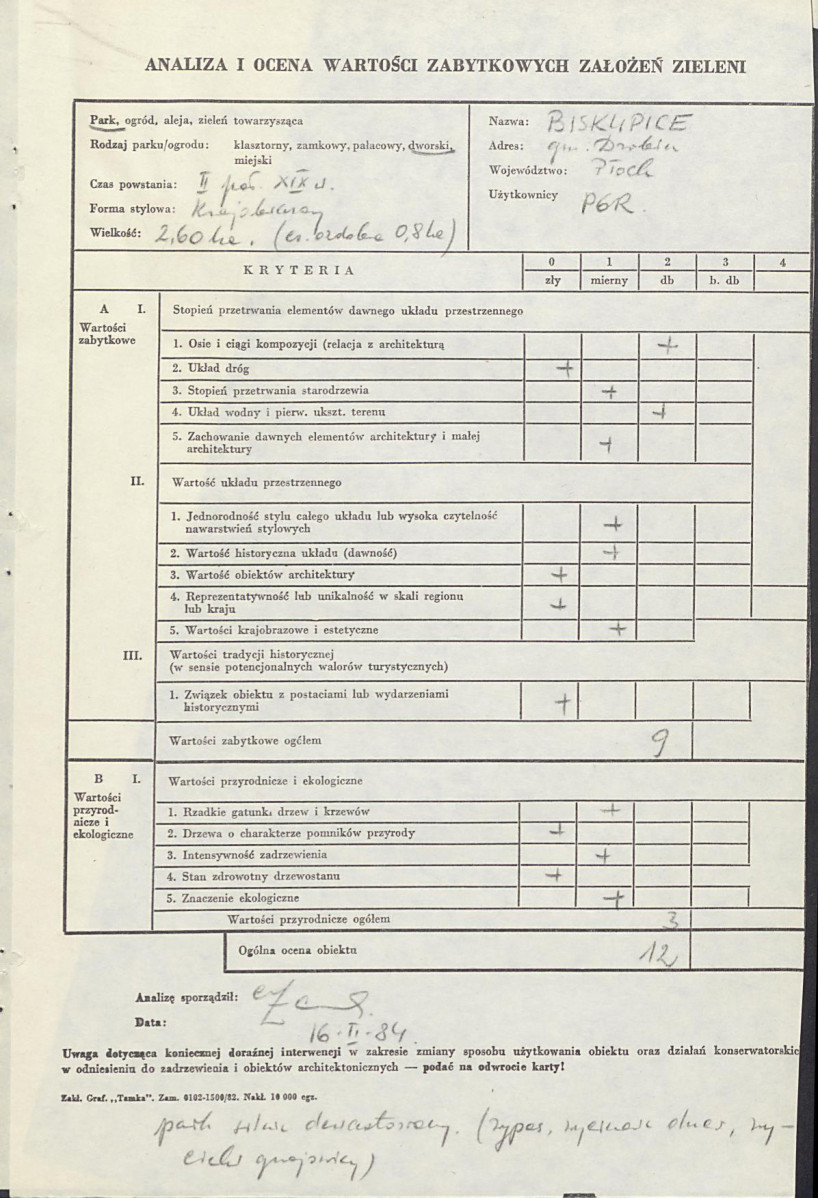 ANALIZA I OCENA WARTOŚCI ZABYTKOWYCH ZAŁOŻEŃ ZIELENI
Park, ogród, aleja, zieleń towarzysząca
Rodzaj parku/ogrodu: klasztorny, zamkowy, pałacowy, dworski,
miejski
Czas powstania: II poł. XIX w.
Forma stylowa: Krajobrazowy
Wielkość: 2,60 ha, (cz. ozdobna 0,8 ha)
Nazwa: BISKUPICE
Adres: gm. Drobin
Województwo: Płock
Użytkownicy PGR.
KRYTERIA
0 1 2 3 4
zły mierny db b. db
A I. Stopień przetrwania elementów dawnego układu przestrzennego
Wartości
zabytkowe
1. Osie i ciągi kompozycji (relacja z architekturą +
2. Układ dróg +
3. Stopień przetrwania starodrzewia +
4. Układ wodny i pierw. ukszt. terenu +
5. Zachowanie dawnych elementów architektury i małej
architektury +
II. Wartość układu przestrzennego
1. Jednorodność stylu całego układu lub wysoka czytelność
nawarstwień stylowych +
2. Wartość historyczna układu (dawność) +
3. Wartość obiektów architektury +
4. Reprezentatywność lub unikalność w skali regionu
lub kraju +
5. Wartości krajobrazowe i estetyczne +
III. Wartości tradycji historycznej
(w sensie potencjonalnych walorów turystycznych)
1. Związek obiektu z postaciami lub wydarzeniami
historycznymi +
Wartości zabytkowe ogółem 9
B I. Wartości przyrodnicze i ekologiczne
Wartości
przyrod-
nicze i
ekologiczne
1. Rzadkie gatunki drzew i krzewów +
2. Drzewa o charakterze pomników przyrody +
3. Intensywność zadrzewienia +
4. Stan zdrowotny drzewostanu +
5. Znaczenie ekologiczne +
Wartości przyrodnicze ogółem 3
Ogólna ocena obiektu 12
Analizę sporządził:
Data: 16-II-84
Uwaga dotycząca koniecznej doraźnej interwencji w zakresie zmiany sposobu użytkowania obiektu oraz działań konserwatorskic
w odniesieniu do zadrzewienia i obiektów architektonicznych — podać na odwrocie karty!
Zakł. Graf. „Tamka". Zam. 0102-1500/82. Nakł. 10 000 egz.
park silnie dewastowany. (wypas,